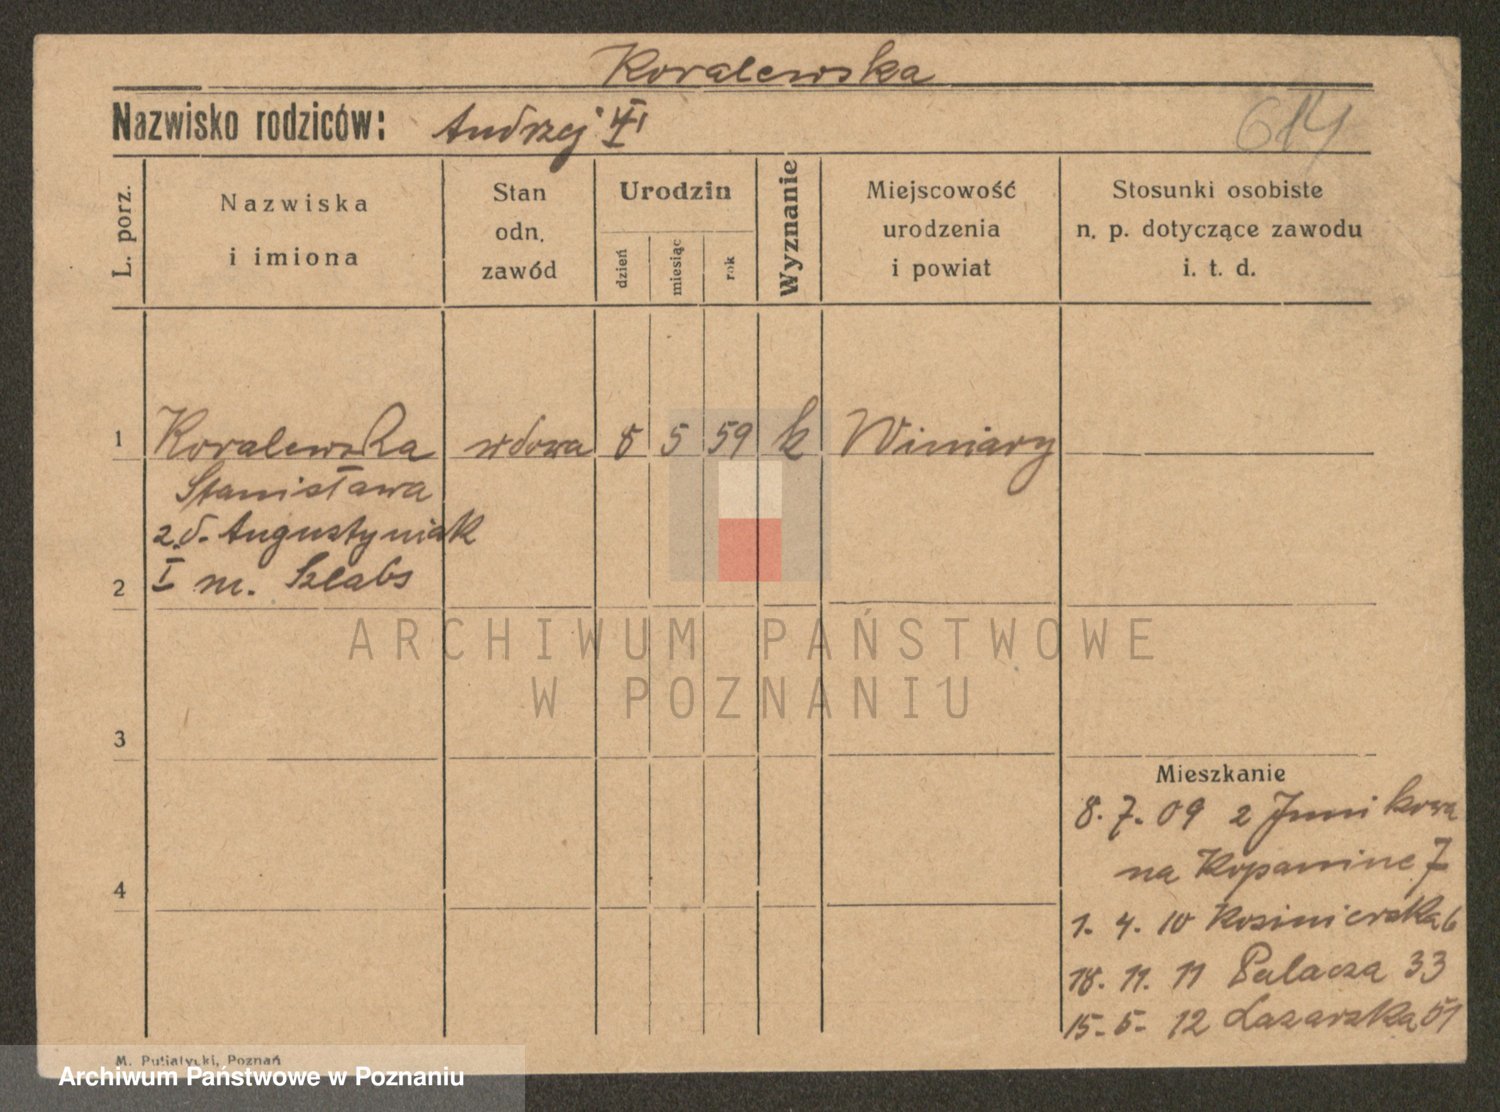 Koralewska
Nazwisko rodziców: Andrzej
614
L. porz.
Nazwiska
i imiona
Stan
odn.
zawód
Urodzin
dzień
miesiąc
rok
Wyznanie
Miejscowość
urodzenia
i powiat
Stosunki osobiste
n. p. dotyczące zawodu
i. t. d.
1 Koralewska wdowa 8 5 59 k Winiary
Stanisława
z d. Augustyniak
2 I m. Szlabs
3
4
Mieszkanie
8. 7. 09 z Junikowa
na Kopaninę 7
1. 4. 10 Kosinierska 6
18. 11. 11 Palacza 33
15. 5. 12 Łazarska 51
M. Putiatycki, Poznań
ARCHIWUM PAŃSTWOWE
W POZNANIU
Archiwum Państwowe w Poznaniu